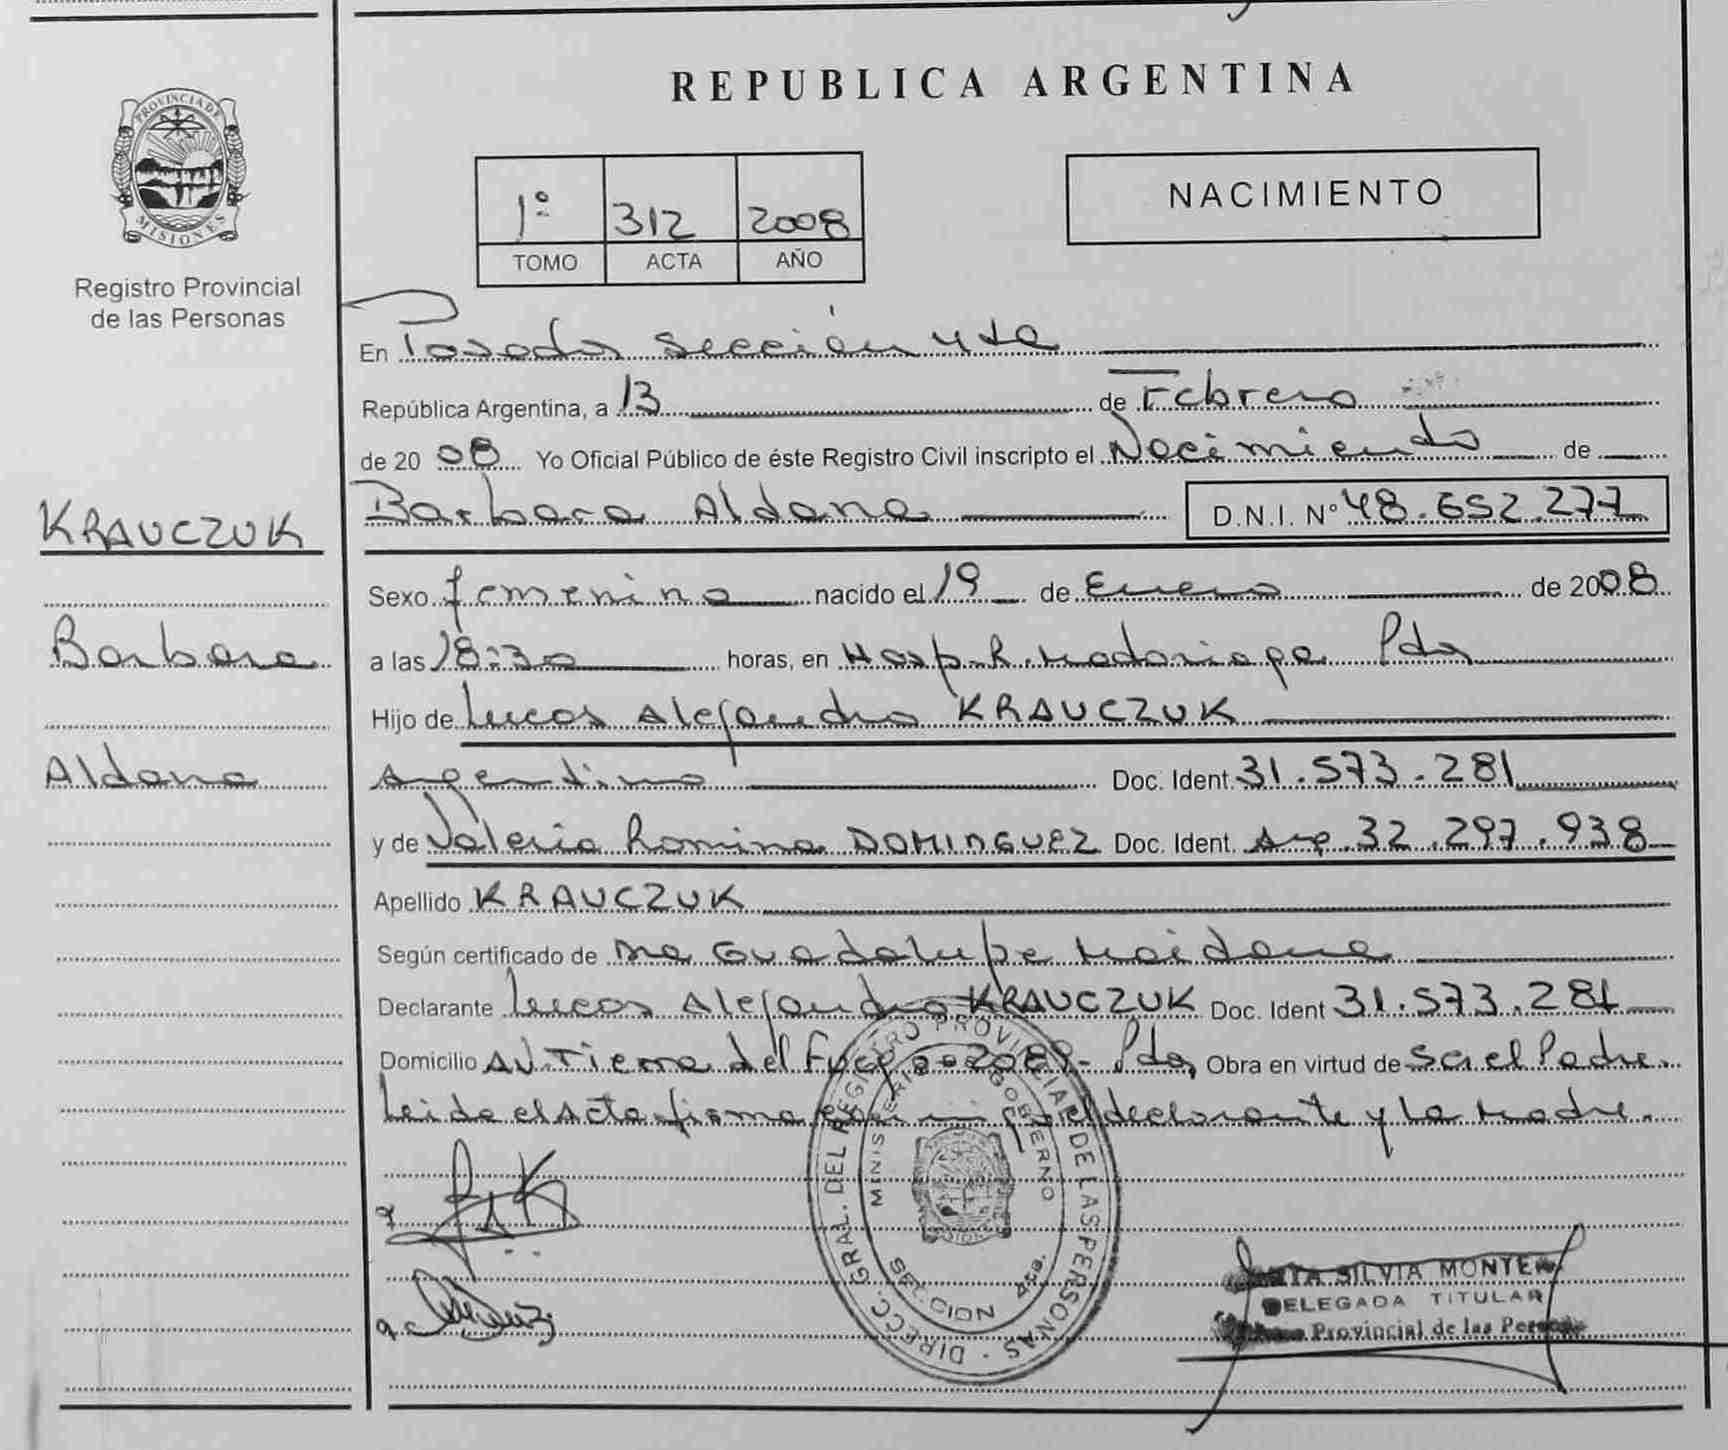 REPUBLICA ARGENTINA
PROVINCIA DE
MISIONES
Registro Provincial
de las Personas
1º 312 2008
TOMO ACTA AÑO
NACIMIENTO
En Posadas Sección 4ta
República Argentina, a 13 de Febrero
de 2008 Yo Oficial Público de éste Registro Civil inscripto el Nacimiento de
Barbara Aldana D.N.I. Nº 48.652.277
KRAUCZUK
Barbara
Aldana
Sexo femenino nacido el 19 de Enero de 2008
a las 18:30 horas, en Hosp. R. Madariaga Pdas
Hijo de Lucas Alejandro KRAUCZUK
Argentino Doc. Ident. 31.573.281
y de Valeria Romina DOMINGUEZ Doc. Ident. Arg. 32.297.938
Apellido KRAUCZUK
Según certificado de Ma Guadalupe Maidana
Declarante Lucas Alejandro KRAUCZUK Doc. Ident 31.573.281
Domicilio Av. Tierra del Fuego 2087 - Pdas Obra en virtud de Ser el Padre.
Leida el Acta firman el declarante y La Madre.
DIRECC. GRAL. DEL REGISTRO PROVINCIAL DE LAS PERSONAS
MINISTERIO DE GOBIERNO
SECCION 4ta.
SILVIA MONTE
DELEGADA TITULAR
Provincial de las